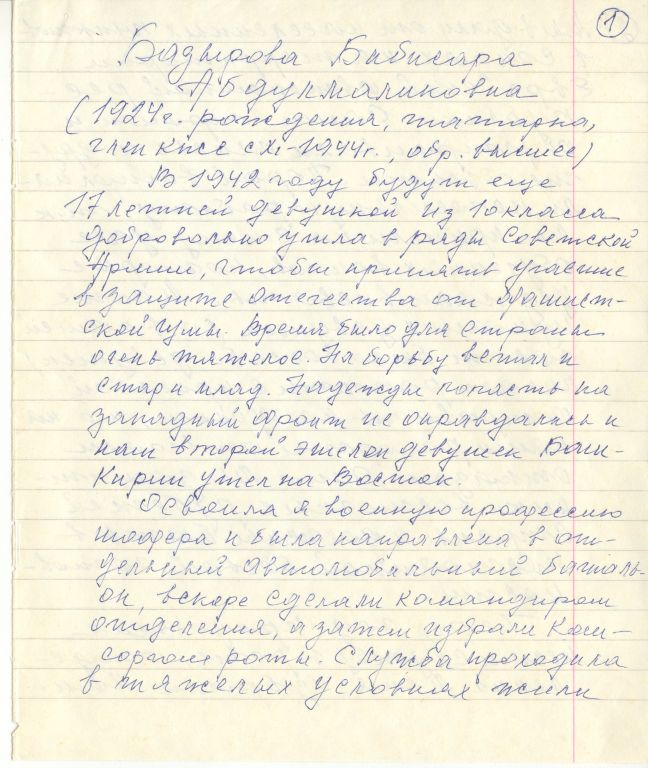 1
Бадырова Бибисара
Абдулмаликовна
(1924г. рождения, татарка,
член КПСС с XI-1944г., обр. высшее)
В 1942 году будут еще
17 летней девушкой из 10 класса
добровольно ушла в ряды Советской
Армии, чтобы принять участие
в защите отечества от фашист-
ской чумы. Время было для страны
очень тяжелое. На борьбу встал и
стар и млад. Надежды попасть на
западный фронт не оправдались и
наш второй эшелон девушек Баш-
кирии ушел на Восток.
Освоила я военную профессию
шофера и была направлена в от-
дельный автомобильный баталь-
он, вскоре сделали командиром
отделения, а затем избрали Ком-
соргом роты. Служба проходила
в тяжелых условиях жили